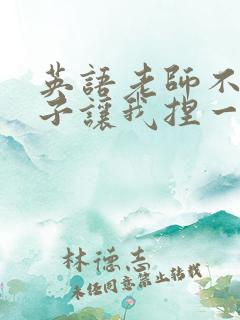 英語老師不
子讓我捏一
林德志
未任同意禁止转载